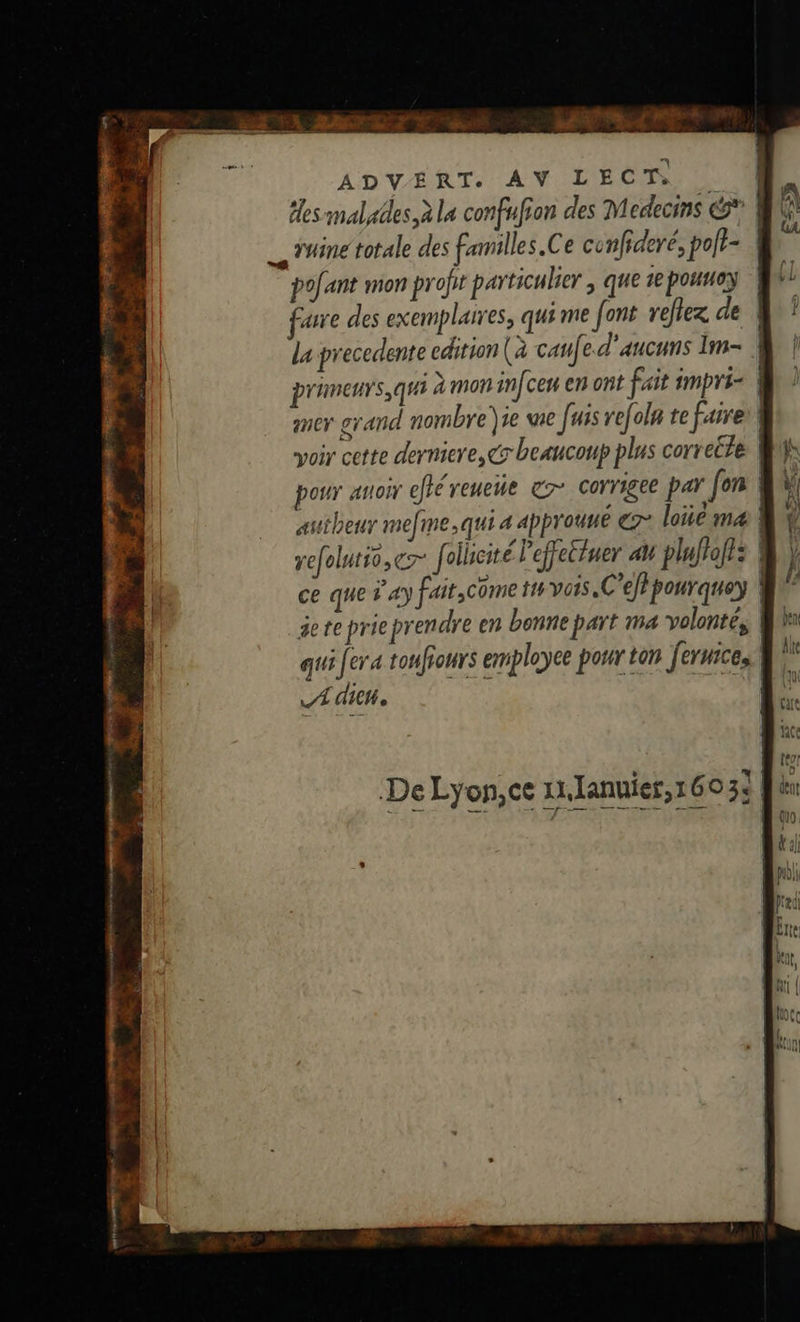 ADVERT. AV LECT.
des malades, à la confuſion des Medecins &
ruine totale des familles. Ce conſideré, poſt-
poſant mon profit particulier, que ie pouuoy
faire des exemplaires, qui me ſont reſtez de
la precedente edition (à cauſe d'aucuns Im-
primeurs, qui à mon inſceu en ont fait impri-
mer grand nombre) ie me ſuis reſolu te faire
voir cette derniere, & beaucoup plus correcte
pour auoir eſté reueüe & corrigee par ſon
autheur meſme, qui a approuué & loüé ma
reſolutiō, & ſollicité l'effectuer au pluſtoſt:
ce que i'ay fait, cōme tu vois. C'eſt pourquoy
ie te prie prendre en bonne part ma volonté,
qui ſera touſiours employee pour ton ſeruice,
A dieu.
De Lyon, ce 11. Ianuier, 1603.